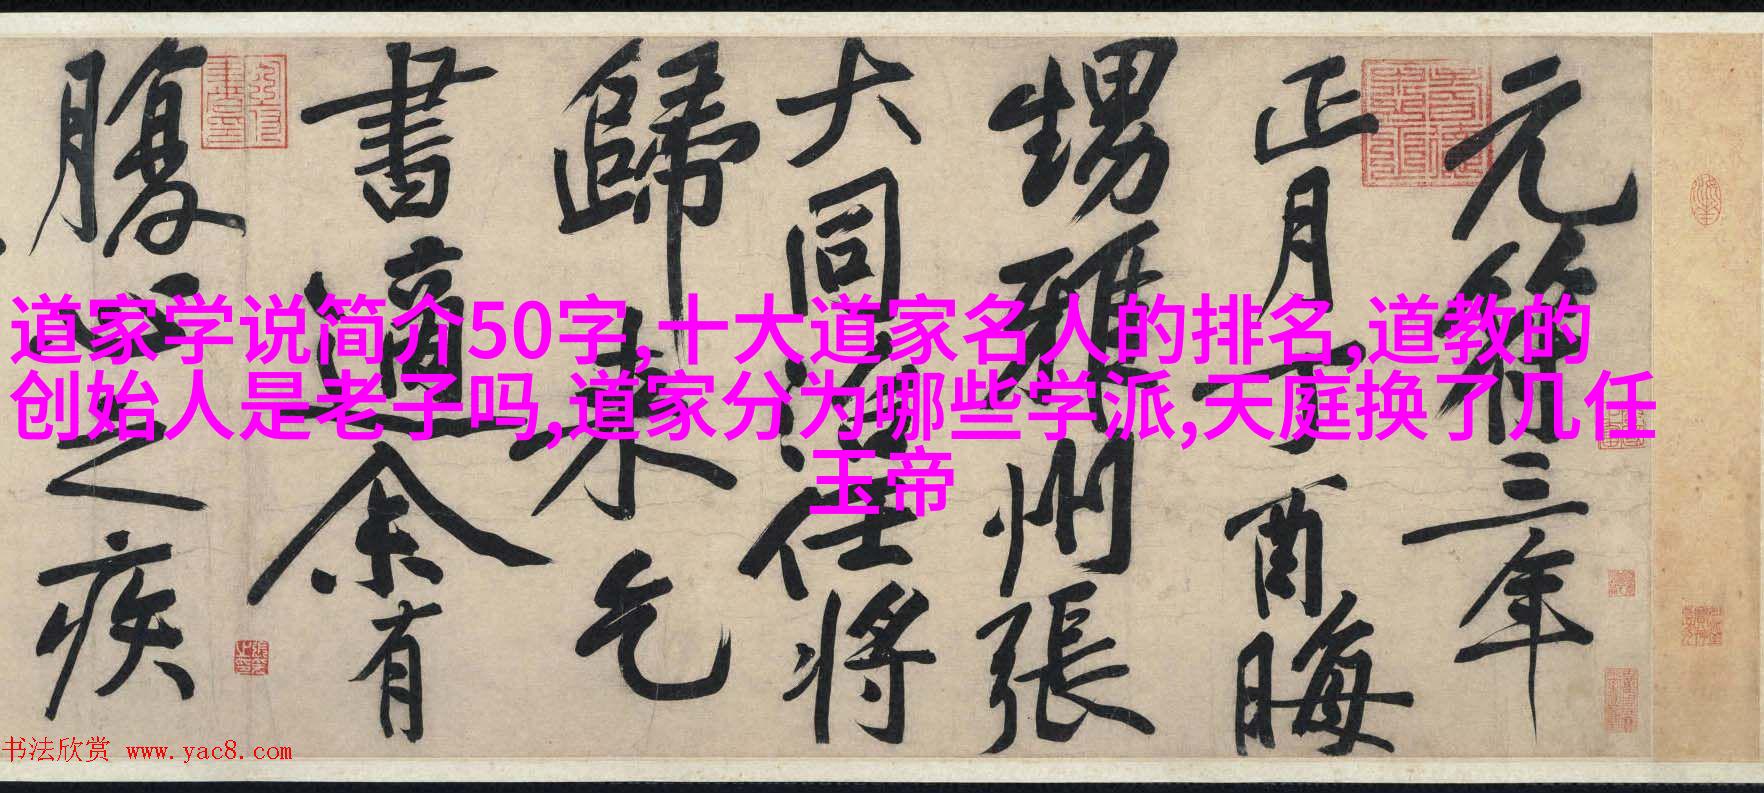 道家学说简介50字,十大道家名人的排名,道教的
创始人是老子吗,道家分为哪些学派,天庭换了几任
玉帝
元符三年
正月丁酉晦
甥雅州張
大同治任將
歸來乞
書適余有
腹心之疾
书法欣赏 www.yac8.com